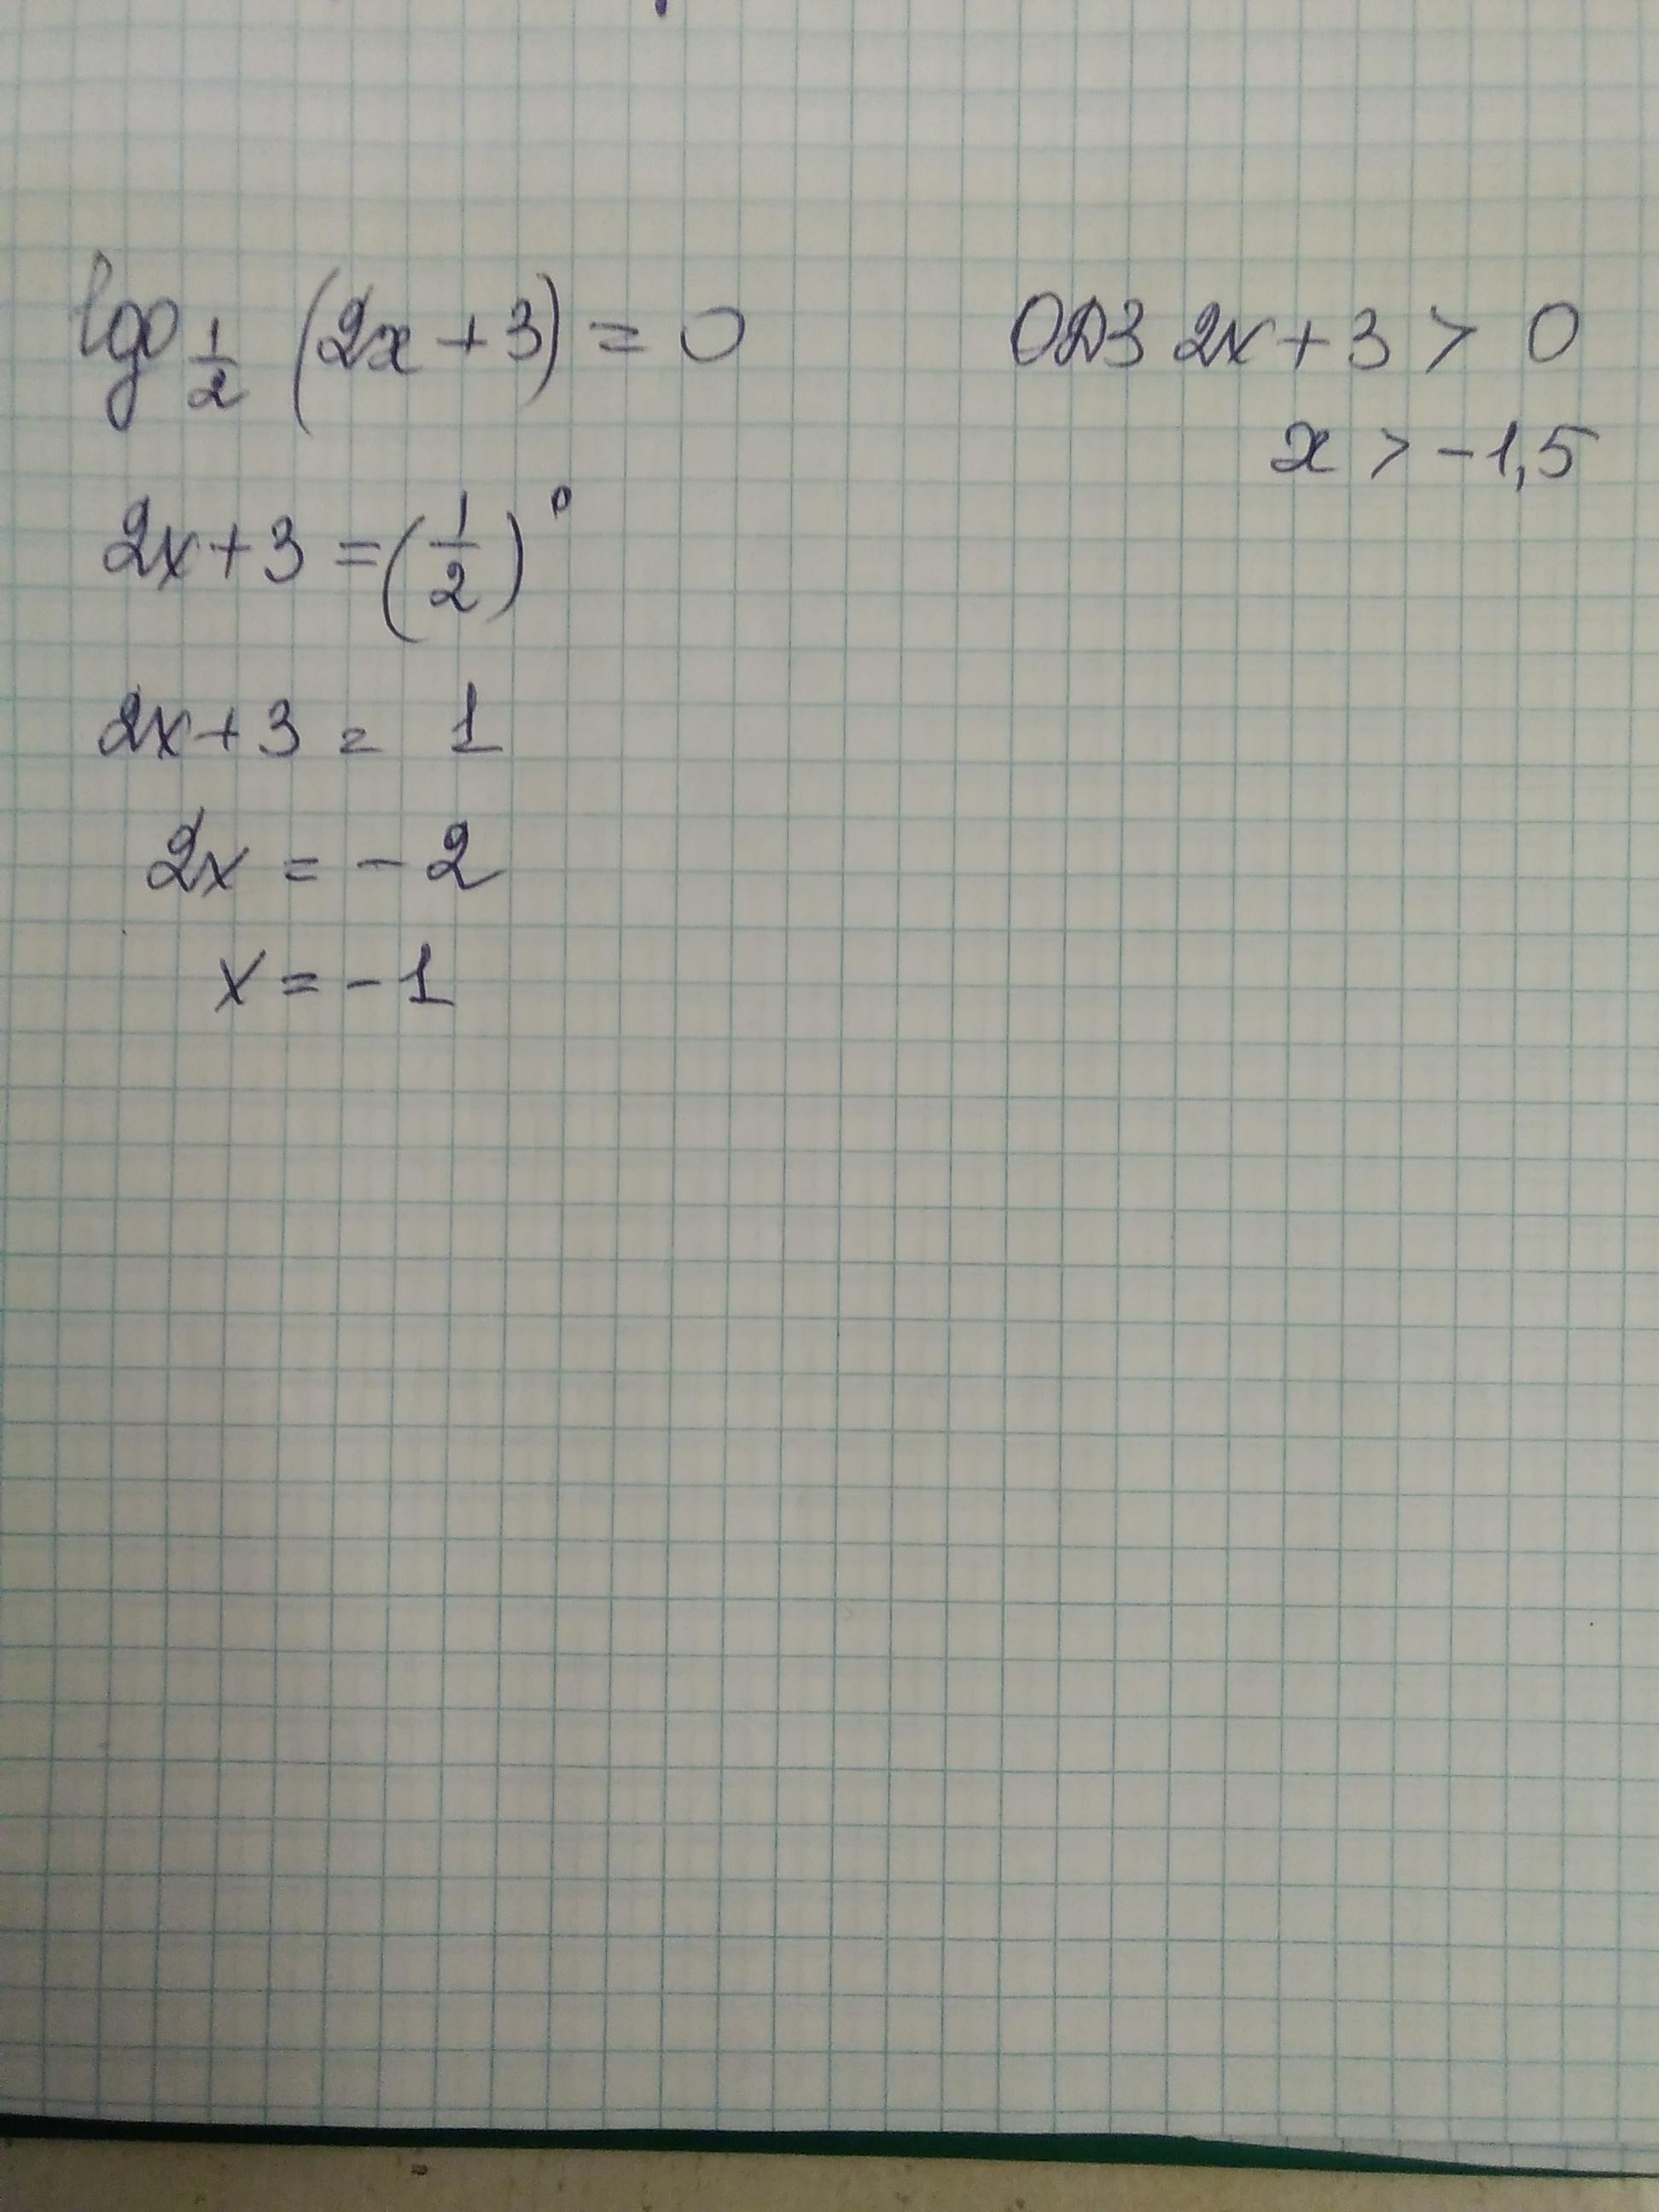 lgo 1/2 (2x + 3) = 0
ОДЗ 2x + 3 > 0
x > -1,5
2x + 3 = (1/2)^0
2x + 3 = 1
2x = - 2
x = - 1